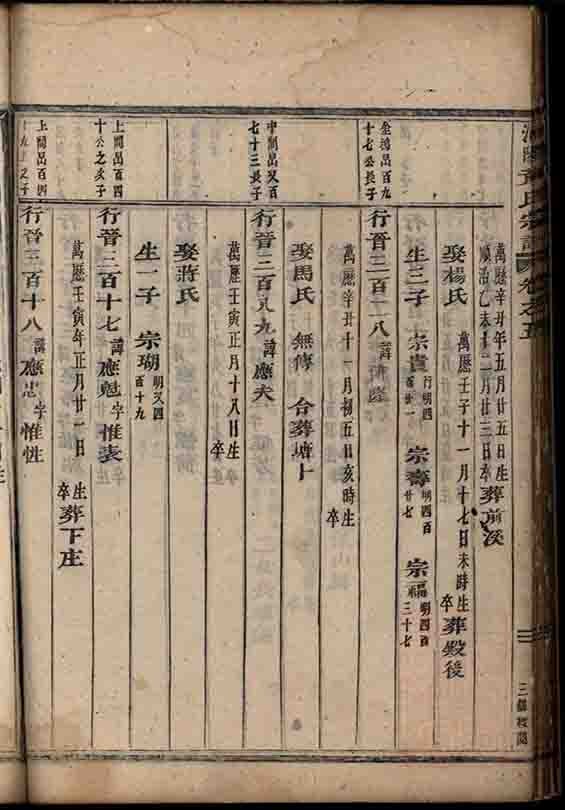 氏宗譜 卷之五
萬歷辛丑年五月廿五日生
順治乙未十二月廿三日卒 葬前溪
娶楊氏 萬歷壬子十一月十七日未時生 卒 葬殿後
生三子 宗貴 行明四百廿一 宗壽 明四百廿七 宗福 明四百三十七
金 昌百九十七公長子
行晉三百一八 諱
萬歷辛丑十一月初五日亥時生 卒
娶馬氏 無傳 合葬塘上
中 昌又百七十三長子
行晉三百 九 諱應夫
萬歷壬寅正月十八日生 卒
娶蔣氏
生一子 宗瑚 明又四百十九
上 昌百四十公之次子
行晉三百十七 諱應魁 字惟表
萬歷壬寅年正月廿一日 生 卒 葬下庄
上 昌百四 之子
行晉三百十八 諱應忠 字惟性